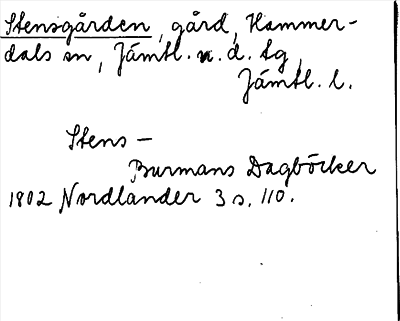 Stensgården, gård, Hammer-
dals sn, Jämtl. n. d. tg,
Jämtl. l.
Stens –
Burmans Dagböcker
1802 Nordlander 3 s. 110.